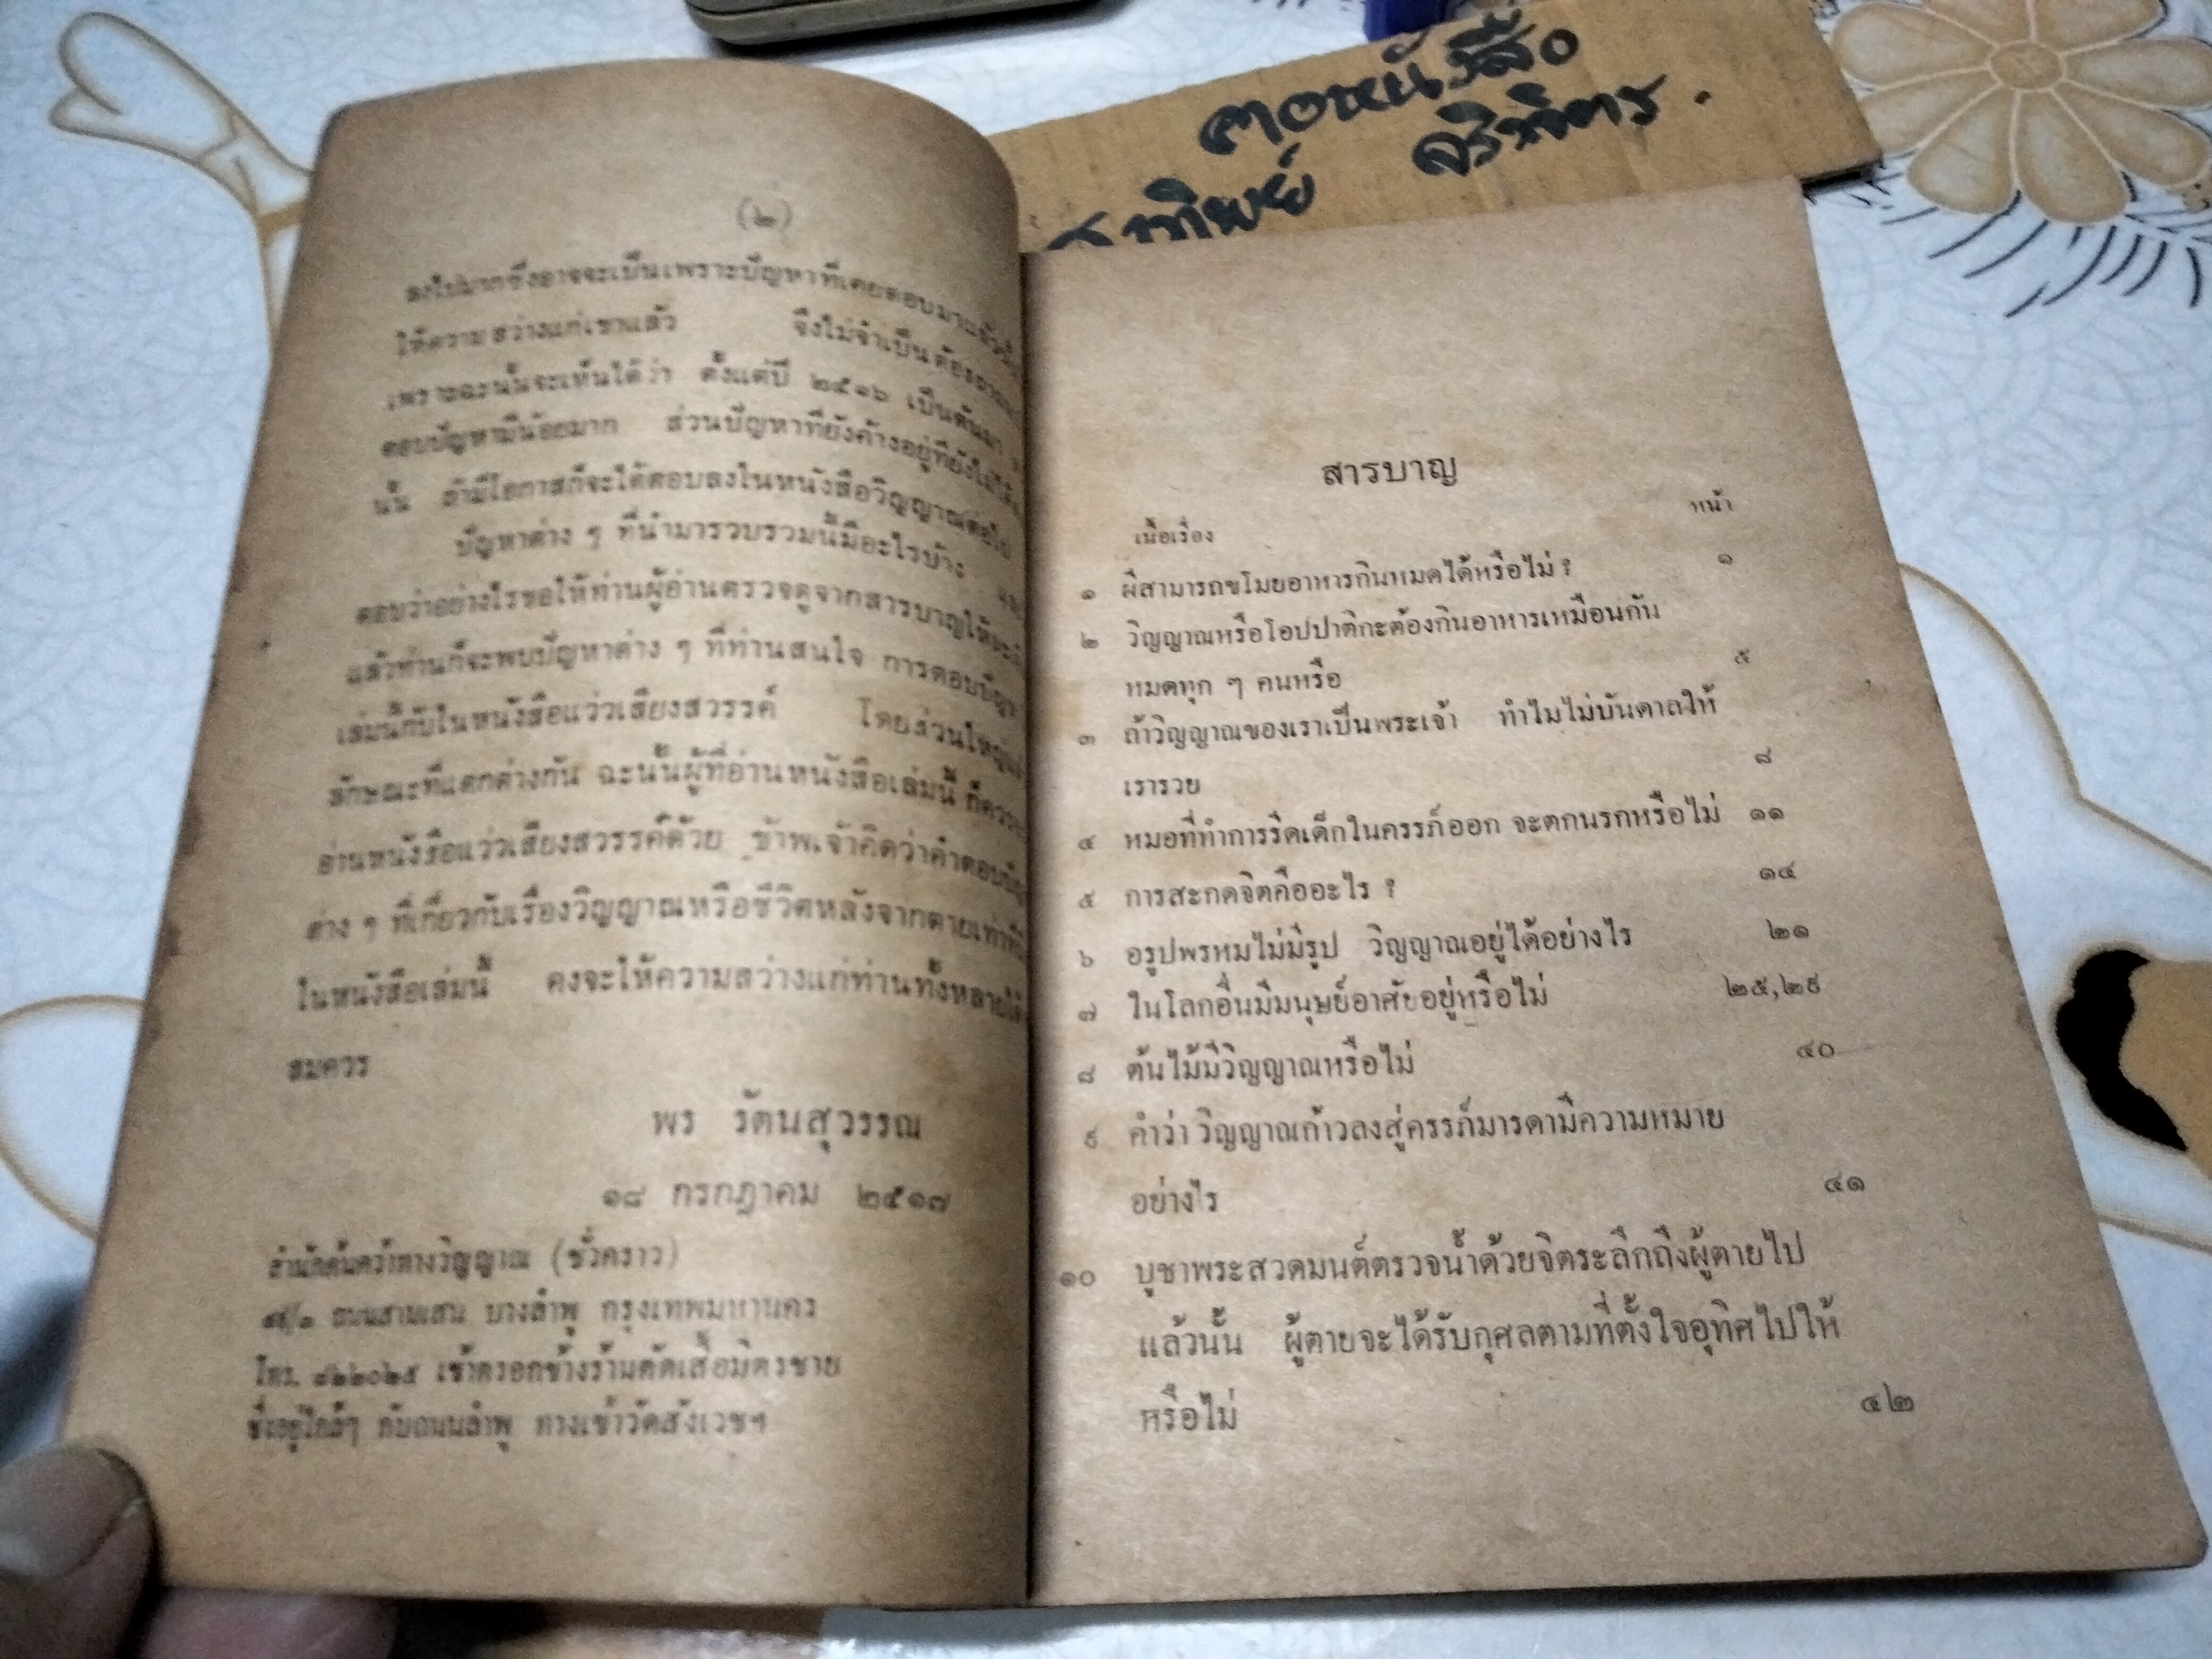 ตอหนังสือ
ทิพย์
(๒)
ลงไปมากซึ่งอาจจะเป็นเพราะปัญหาที่เคยตอบมาแล้วนั้น
ให้ความสว่างแก่เขาแล้ว จึงไม่จำเป็นต้องถาม
เพราะฉะนั้นจะเห็นได้ว่า ตั้งแต่ปี ๒๕๑๖ เป็นต้นมา
ตอบปัญหามีน้อยมาก ส่วนปัญหาที่ยังค้างอยู่ที่ยังไม่ได้
นั้น ถ้ามีโอกาสก็จะได้ตอบลงในหนังสือวิญญาณต่อไป
ปัญหาต่าง ๆ ที่นำมารวบรวมนี้มีอะไรบ้าง และ
ตอบว่าอย่างไรขอให้ท่านผู้อ่านตรวจดูจากสารบาญให้
แล้วท่านก็จะพบปัญหาต่าง ๆ ที่ท่านสนใจ การตอบปัญหา
เล่มนี้กับในหนังสือแว่วเสียงสวรรค์ โดยส่วนใหญ่
ลักษณะที่แตกต่างกัน ฉะนั้นผู้ที่อ่านหนังสือเล่มนี้ ก็ควร
อ่านหนังสือแว่วเสียงสวรรค์ด้วย ข้าพเจ้าคิดว่าคำตอบปัญ
ต่าง ๆ ที่เกี่ยวกับเรื่องวิญญาณหรือชีวิตหลังจากตายเท่าที่
ในหนังสือเล่มนี้ คงจะให้ความสว่างแก่ท่านทั้งหลายได้
สมควร
พร รัตนสุวรรณ
๑๘ กรกฎาคม ๒๕๑๗
สำนักค้นคว้าทางวิญญาณ (ชั่วคราว)
ถนนสามเสน บางลำพู กรุงเทพมหานคร
โทร. ๘๒๒๐๒๕ เข้าตรอกข้างร้านตัดเสื้อมิตรชาย
ซึ่งอยู่ใกล้ๆ กับถนนลำพู ทางเข้าวัดสังเวชฯ
สารบาญ
เนื้อเรื่อง หน้า
๑ ผีสามารถขโมยอาหารกินหมดได้หรือไม่ ? ๑
๒ วิญญาณหรือโอปปาติกะต้องกินอาหารเหมือนกัน
หมดทุก ๆ คนหรือ ๕
๓ ถ้าวิญญาณของเราเป็นพระเจ้า ทำไมไม่บันดาลให้
เรารวย ๘
๔ หมอที่ทำการรีดเด็กในครรภ์ออก จะตกนรกหรือไม่ ๑๑
๕ การสะกดจิตคืออะไร ? ๑๔
๖ อรูปพรหมไม่มีรูป วิญญาณอยู่ได้อย่างไร ๒๑
๗ ในโลกอื่นมีมนุษย์อาศัยอยู่หรือไม่ ๒๕,๒๙
๘ ต้นไม้มีวิญญาณหรือไม่ ๔๐
๙ คำว่า วิญญาณก้าวลงสู่ครรภ์มารดามีความหมาย
อย่างไร ๔๑
๑๐ บูชาพระสวดมนต์ตรวจน้ำด้วยจิตระลึกถึงผู้ตายไป
แล้วนั้น ผู้ตายจะได้รับกุศลตามที่ตั้งใจอุทิศไปให้
หรือไม่ ๔๒